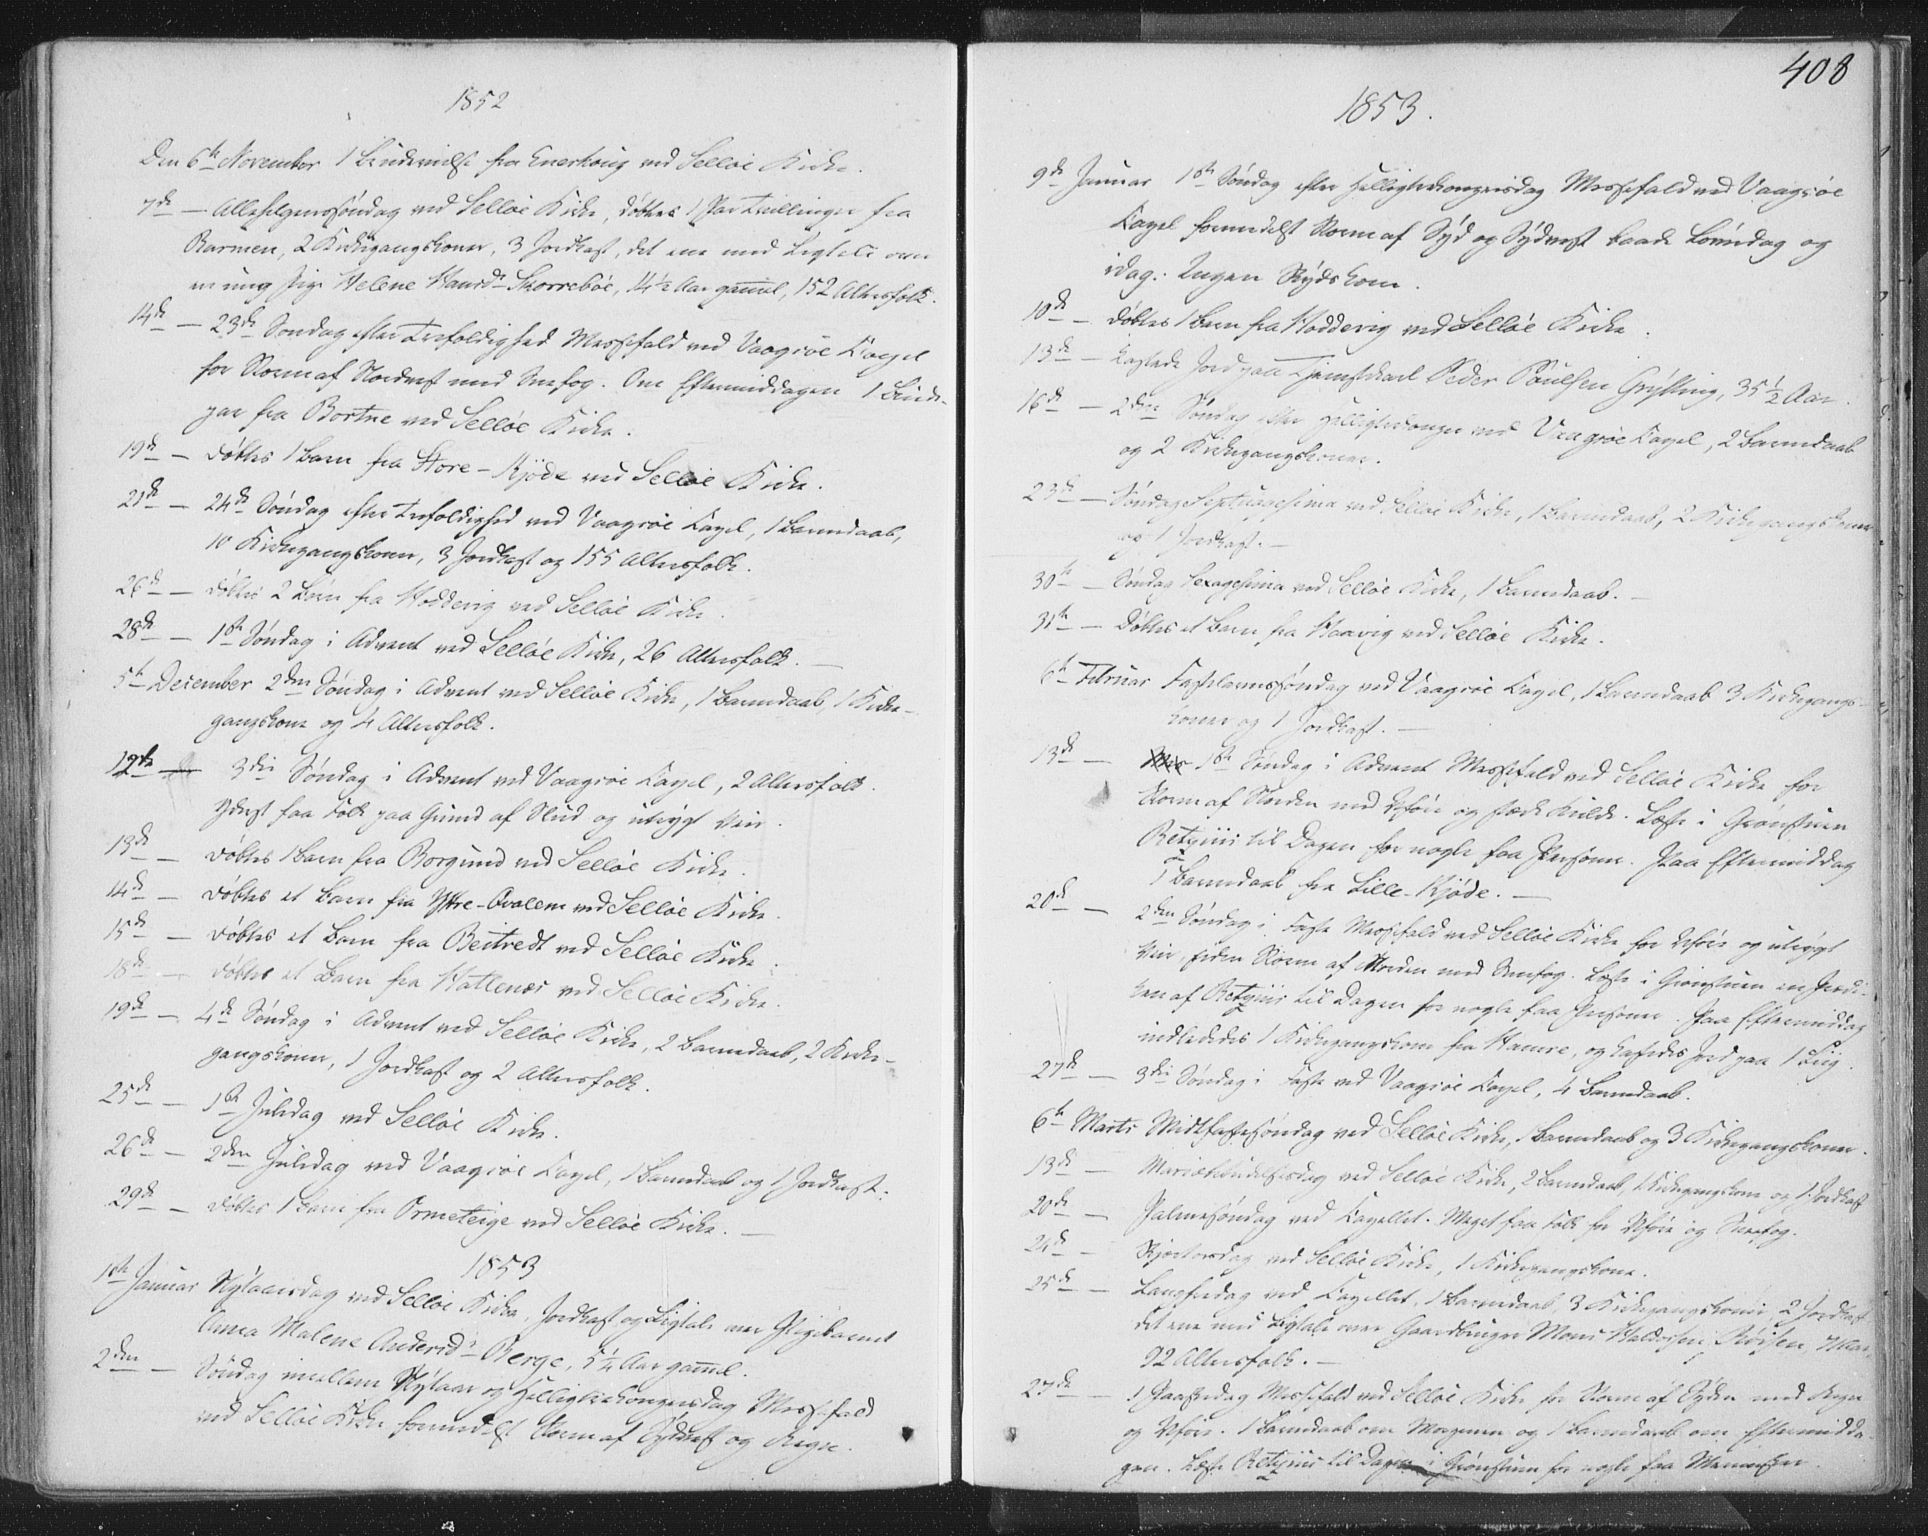 1852
Den 6te November 1 Brudevielse fra Enerhoug ved Selløe Kirke.
7de — Allehelgenssøndag ved Selløe Kirke, døbtes 1 Par Tvillinger fra
Barmen, 2 Kirkegangskoner, 3 Jordkast, det ene med Ligtale over
en ung Pige Helene Hansdr Skorrebøe, 14½ Aar gammel, 152 Altersfolk.
14de — 23de Søndag efter Trefoldighed Messefald ved Vaagsøe Capel
for Storm af Nordvest med Snefog. Om Eftermiddagen 1 Brude-
par fra Bortne ved Selløe Kirke.
19de — døbtes 1 Barn fra Store-Kjøde ved Selløe Kirke.
21de — 24de Søndag efter Trefoldighed ved Vaagsøe Capel, 1 Barnedaab,
10 Kirkegangskoner, 3 Jordkast og 155 Altersfolk.
26de — døbtes 2 Børn fra Hoddevig ved Selløe Kirke.
28de — 1ste Søndag i Advent ved Selløe Kirke, 26 Altersfolk. —
5te December 2den Søndag i Advent ved Selløe Kirke, 1 Barnedaab, 1 Kirke-
gangskone og 4 Altersfolk.
12te — 3die Søndag i Advent ved Vaagsøe Capel, 2 Altersfolk.
Yderst faa Folk paa Grund af Slud og utrygt Veir.
13de — døbtes 1 Barn fra Borgund ved Selløe Kirke.
14de — døbtes et Barn fra Yttre-Qvalem ved Selløe Kirke.
15de — døbtes et Barn fra Beitvedt ved Selløe Kirke.
18de — døbtes et Barn fra Hatlenæs ved Selløe Kirke.
19de — 4de Søndag i Advent ved Selløe Kirke, 2 Barnedaab, 2 Kirke-
gangskoner, 1 Jordkast og 2 Altersfolk.
25de — 1ste Juledag ved Selløe Kirke.
26de — 2den Juledag ved Vaagsøe Capel, 1 Barnedaab og 1 Jordkast.
29de — døbtes 1 Barn fra Ormeteige ved Selløe Kirke. —
1853
1ste Januar Nytaarsdag ved Selløe Kirke, Jordkast og Ligtale over Pigebarnet
Anna Malene Andersdr Berge, 5¼ Aar gammel.
2den — Søndag imellem Nytaar og Helligtrekongersdag Messefald
ved Selløe Kirke formedelst Storm af Sydvest og Regn.
408
1853.
9de Januar 1ste Søndag efter Helligtrekongersdag Messefald ved Vaagsøe
Capel formedelst Storm af Syd og Sydvest baade Løverdag og
idag. Ingen Skyds kom.
10de — døbtes 1 Barn fra Hoddevig ved Selløe Kirke.
13de — kastede Jord paa Tjenestekarl Peder Paulsen Grytting, 35½ Aar.
16de — 2den Søndag efter Helligtrekonger ved Vaagsøe Capel, 2 Barnedaab
og 2 Kirkegangskoner.
23de — Søndag Septuagesima ved Selløe Kirke, 1 Barnedaab, 2 Kirkegangskoner
og 1 Jordkast. —
30te — Søndag Sexagesima ved Selløe Kirke, 1 Barnedaab. —
31te — Døbtes et Barn fra Haavig ved Selløe Kirke.
6te Februar Fastelavnssøndag ved Vaagsøe Capel, 1 Barnedaab 3 Kirkegangs-
koner og 1 Jordkast. —
13de — 1ste Søndag i Advent Messefald ved Selløe Kirke for
Storm af Norden med Uføre og stærk Kulde. Læste i Grønstuen
Retzius til Dagen for nogle faa Personer. Paa Eftermiddag
1 Barnedaab fra Lille-Kjøde. —
20de — 2den Søndag i Faste Messefald ved Selløe Kirke for Uføre og utrygt
Veir, siden Storm af Norden med Snefog. Læste i Grønstuen en Prædi-
ken af Retzius til Dagen for nogle faa Personer. Paa Eftermiddag
indlededes 1 Kirkegangskone fra Hamre, og kastedes Jord paa 1 Liig.
27de — 3die Søndag i Faste ved Vaagsøe Capel, 4 Barnedaab.
6te Marts Midtfastesøndag ved Selløe Kirke, 1 Barnedaab og 3 Kirkegangskoner.
13de — Mariæbebudelsesdag ved Selløe Kirke, 2 Barnedaab, 1 Kirkegangskone og 1 Jordkast
20de — Palmesøndag ved Capellet. Meget faa Folk for Uføre og Snefog.
24de — Skjærtorsdag ved Selløe Kirke, 1 Kirkegangskone.
25de — Langfredag ved Capellet, 1 Barnedaab, 3 Kirkegangskoner 2 Jordkast
det ene med Ligtale over Gaardbruger Mons
92 Altersfolk. —
27de — 1 Paaskedag Messefald ved Selløe Kirke for Storm af Syden med Regn
og Uføre. 1 Barnedaab om Morgenen og 1 Barnedaab om Eftermidda-
gen. Læste Retzius til Dagen i Grønstuen for nogle faa Mennesker.